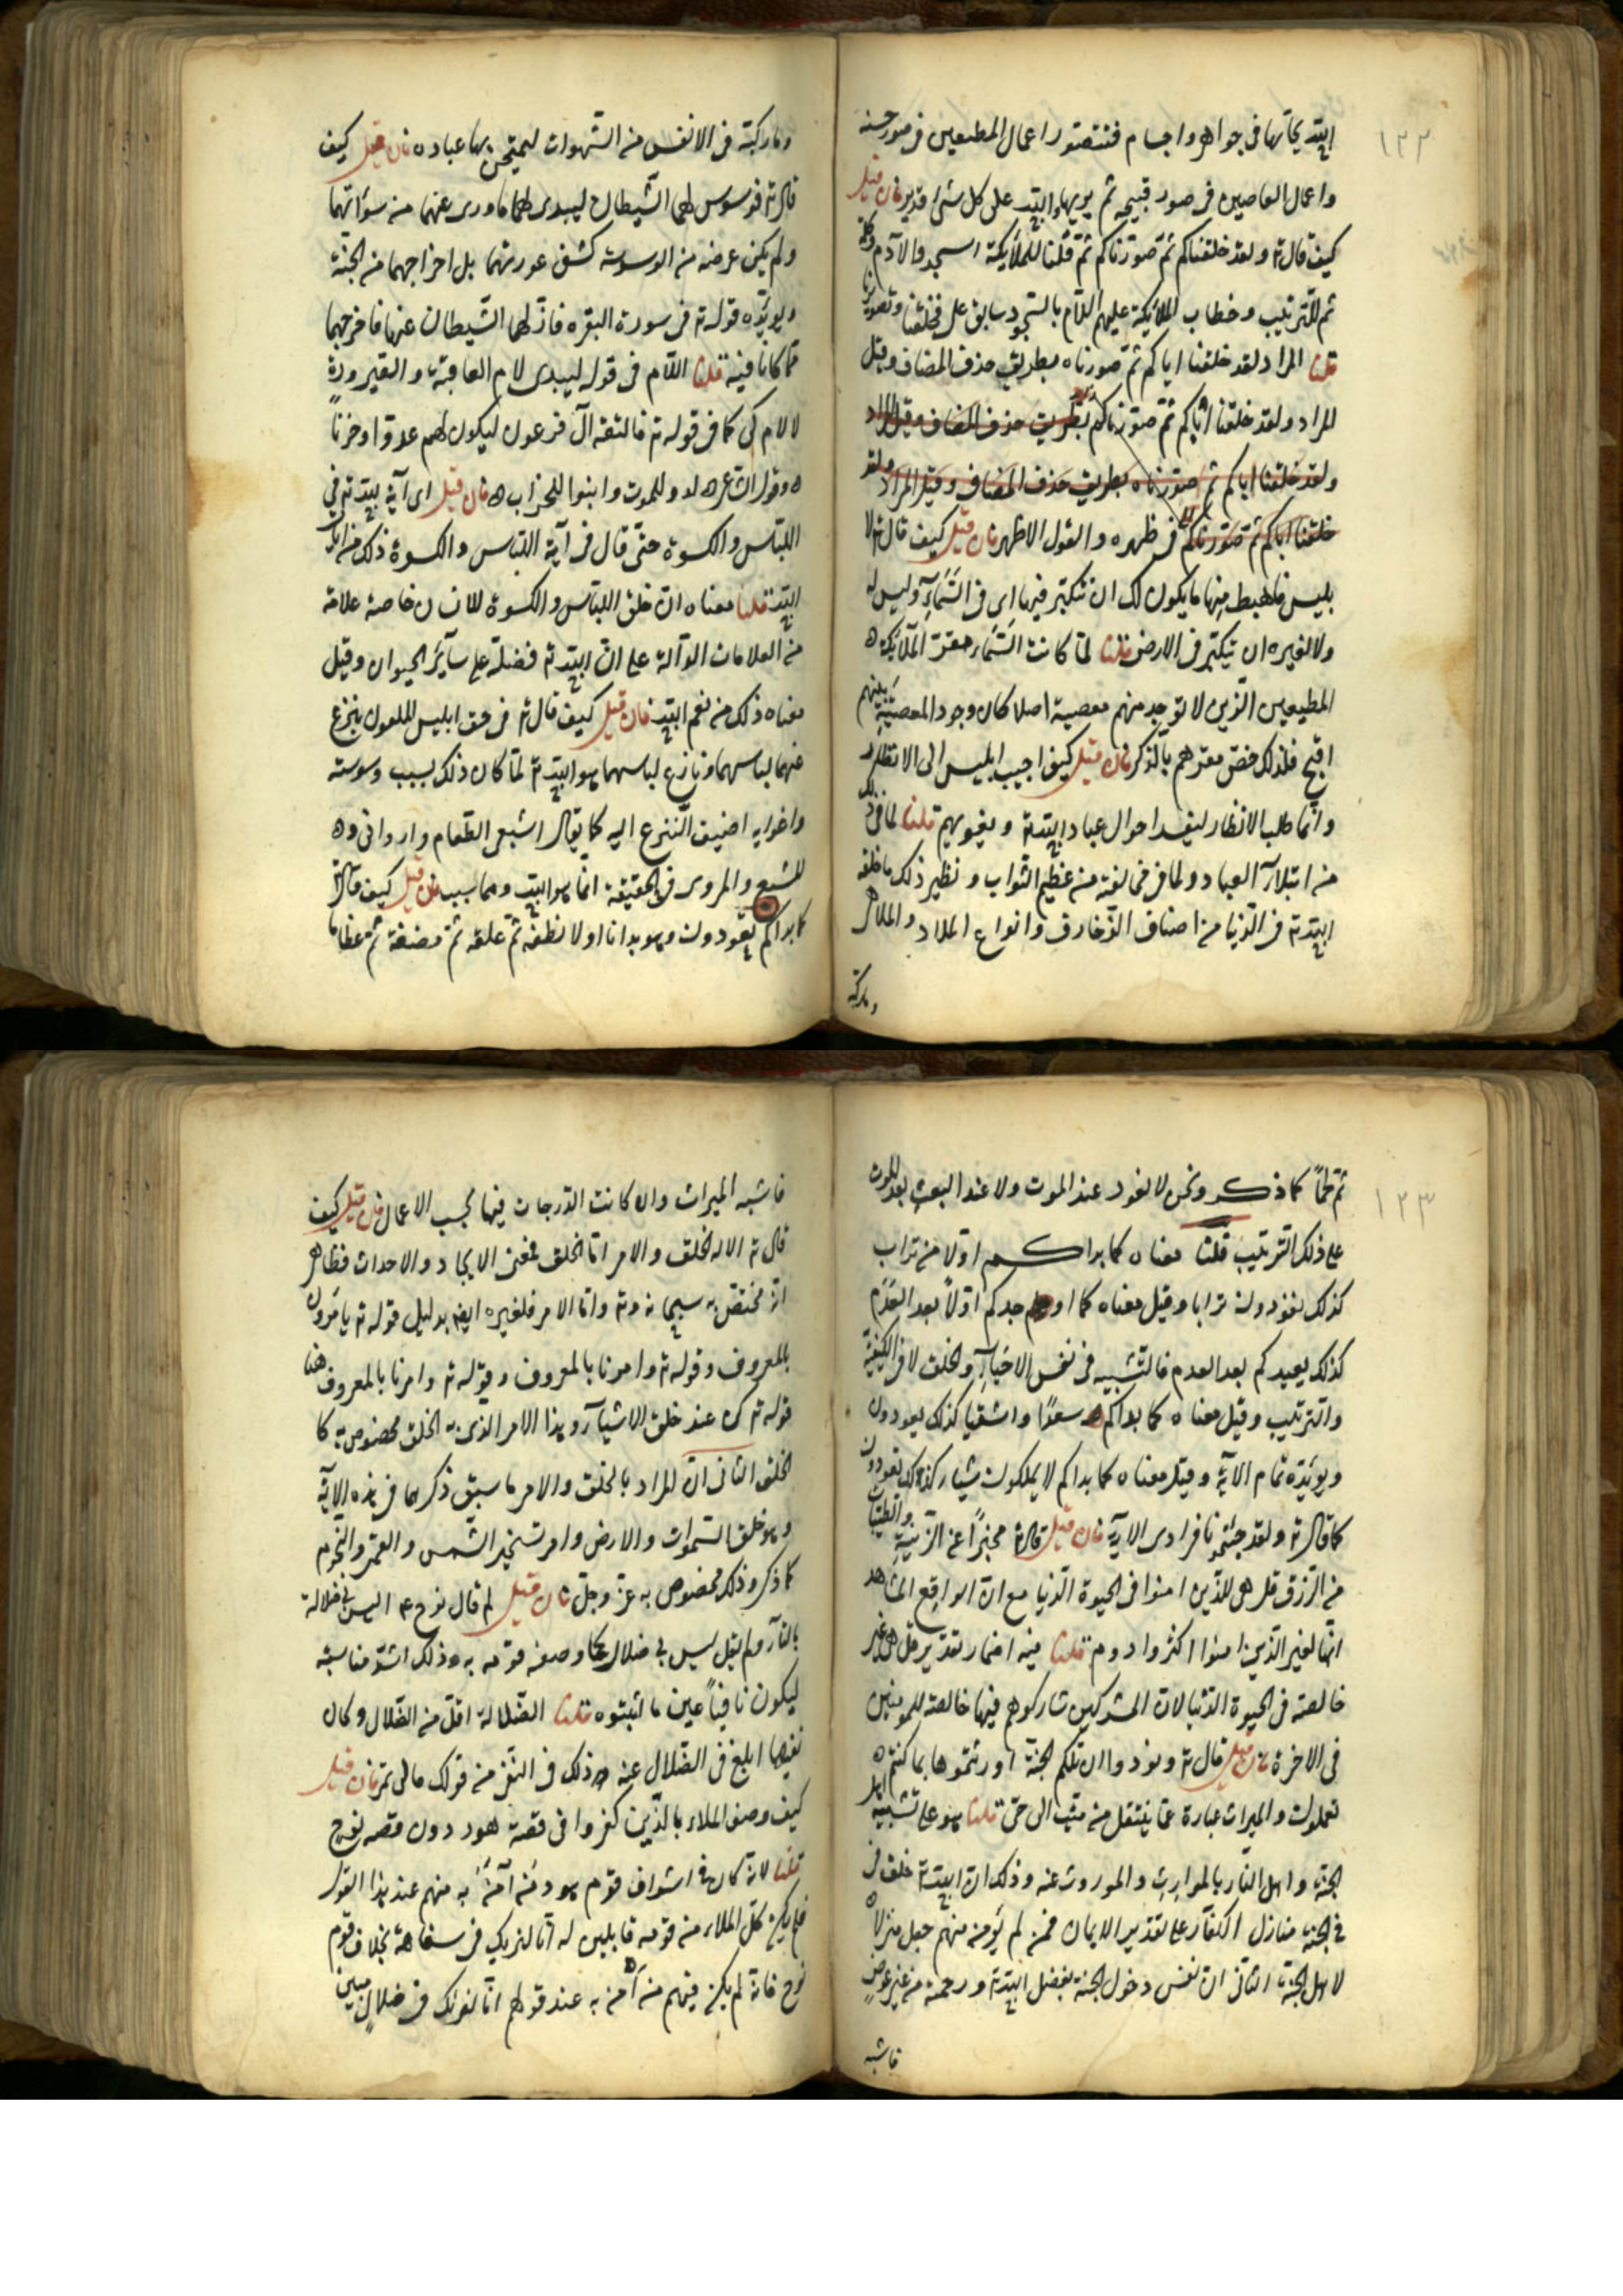 ١٢٢
الله يحاتها فى جواهر واجسام فتتصور اعمال المطيعين فى صور حسنه
واعمال العاصين فى صور قبيحه ثم يوزنها والله على كل شئ قدير فان قيل
كيف قال تع ولقد خلقناكم ثم صورناكم ثم قلنا للملائكة اسجدوا لآدم وكلمة
ثم للترتيب وخطاب الملائكة عليهم السلام بالسجود سابق على خلقنا وتصويرنا
قلنا المراد لقد خلقنا اباكم ثم صورناه بطريق حذف المضاف وقيل
المراد ولقد خلقنا اباكم ثم صورناكم بطريق حذف المضاف وقيل المراد
ولقد خلقنا اباكم ثم صورناه بطريق حذف المضاف وقيل المراد ولقد
خلقنا اباكم ثم صورناكم فى ظهره والقول الاظهر فان قيل كيف قال تع لا
بليس فاهبط منها ما يكون لك ان تتكبر فيها اى فى السماء وليس له
ولا لغيره ان يتكبر فى الارض قلنا لما كانت السماء مقر الملائكة
المطيعين الذين لا توجد منهم معصية اصلا كان وجود المعصية بينهم
اقبح فلذلك خص مقرهم بالذكر فان قيل كيف اجيب ابليس الى الانظار
وانما طلب الانظار ليفسد احوال عباد الله تع ويغويهم قلنا لما فى ذلك
من ابتلاء العباد ولما فى مخالفته من عظيم الثواب ونظير ذلك ما خلقه
الله تع فى الدنيا من اصناف الزخارف وانواع الملاذ والملاهى
وما ركبه
وما ركبه فى الانفس من الشهوات ليمتحن بها عباده فان قيل كيف
قال تع فوسوس لهما الشيطان ليبدى لهما ماورى عنهما من سوآتهما
ولم يكن غرضه من الوسوسة كشف عورتهما بل اخراجهما من الجنة
ويؤيده قوله تع فى سورة البقره فازلهما الشيطان عنها فاخرجهما
مما كانا فيه قلنا اللام فى قوله ليبدى لام العاقبة والصيرورة
لا لام كى كما فى قوله تع فالتقطه آل فرعون ليكون لهم عدوا وحزنا
وقول الشاعر لدوا للموت وابنوا للخراب فان قيل اى آية لله تع فى
اللباس والكسوة حتى قال فى آية اللباس والكسوة ذلك من ايات
الله قلنا معناه ان خلق اللباس والكسوة للانسان خاصة علامة
من العلامات الدالة على ان الله تع فضله على سائر الحيوان وقيل
معناه ذلك من نعم الله فان قيل كيف قال تع فى حق ابليس الملعون ينزع
عنهما لباسهما ونازع لباسهما هو الله تع لما كان ذلك بسبب وسوسته
واغوايه اضيف النزع اليه كما يقال اشبعنى الطعام واروانى و
المشبع والمروى فى الحقيقة انما هو الله وهما سبب فان قيل كيف قال تع
كما بداكم تعودون وهو بدانا اولا نطفة ثم علقه ثم مضغة ثم عظاما
١٢٣
ثم لحما كما ذكر ونحن لا نعود عند الموت ولا عند البعث بعد الموت
على ذلك الترتيب قلنا معناه كما بداكم اولا من تراب
كذلك تعودون ترابا وقيل معناه كما اوجدكم اولا بعد العدم
كذلك يعيدكم بعد العدم فالتشبيه فى نفس الاحياء والخلق لا فى الكيفية
والترتيب وقيل معناه كما بداكم سعدا واشقيا كذلك تعودون
ويؤيده تمام الاية وقيل معناه كما بداكم لا يملكون شيا كذلك تعودون
كما قال تع ولقد جئتمونا فرادى الاية فان قيل قال تع مخبرا عن الزينة والطيبات
من الرزق قل هى للذين امنوا فى الحيوة الدنيا مع ان الواقع المشاهد
انها لغير الذين امنوا اكثر وادوم قلنا فيه اضمار تقديره قل هى غير
خالصة فى الحيوة الدنيا لان المشركين شاركوهم فيها خالصة للمومنين
فى الاخرة فان قيل قال تع ونودوا ان تلكم الجنة اورثتموها بما كنتم
تعملون والميراث عبارة عما ينتقل من ميت الى حى قلنا هو على تشبيه اهل
الجنة واهل النار بالموارث والموروث عنه وذلك ان الله تع خلق فى
فى الجنة منازل الكفار على تقدير الايمان فمن لم يؤمن منهم جعل منزله
لاهل الجنة الثانى ان نفس دخول الجنة بفضل الله تع ورحمته من غير عوض
فاشبه
فاشبه الميراث وان كانت الدرجات فيها بحسب الاعمال فان قيل كيف
قال تع الا له الخلق والامر اما الخلق بمعنى الايجاد والاحداث فظاهر
انه مختص به سبحانه وتع واما الامر فلغيره ايضا بدليل قوله تع يامرون
بالمعروف وقوله تع وامرنا بالمعروف وقوله تع وامرنا بالمعروف هنا
قوله تع كن عند خلق الاشياء وهذا الامر الذى به الخلق مخصوص به كا
الخلق الثانى ان المراد بالخلق والامر ما سبق ذكرهما فى هذه الاية
وهو خلق السموات والارض وامر تسخير الشمس والقمر والنجوم
كما ذكر وذلك مخصوص به عز وجل فان قيل لم قال نوح ع ليس بى ضلالة
بالتاء ولم يقل ليس بى ضلال كما وصفه قومه به وذلك اشد مناسبة
ليكون نافيا عين ما اثبتوه قلنا الضلالة اقل من الضلال وكان
نفيها ابلغ فى الضلال عنه وذلك فى النفى من قولك مالى تمر فان قيل
كيف وصف الملاء بالذين كفروا فى قصة هود دون قصه نوح
قلنا لانه كان فى اشراف قوم هود من آمن به منهم عند هذا القول
فلم يكن كل الملاء من قومه قايلين له انا لنريك فى سفاهة بخلاف قوم
نوح فانه لم يكن فيهم من آمن به عند قولهم انا لنريك فى ضلال مبين